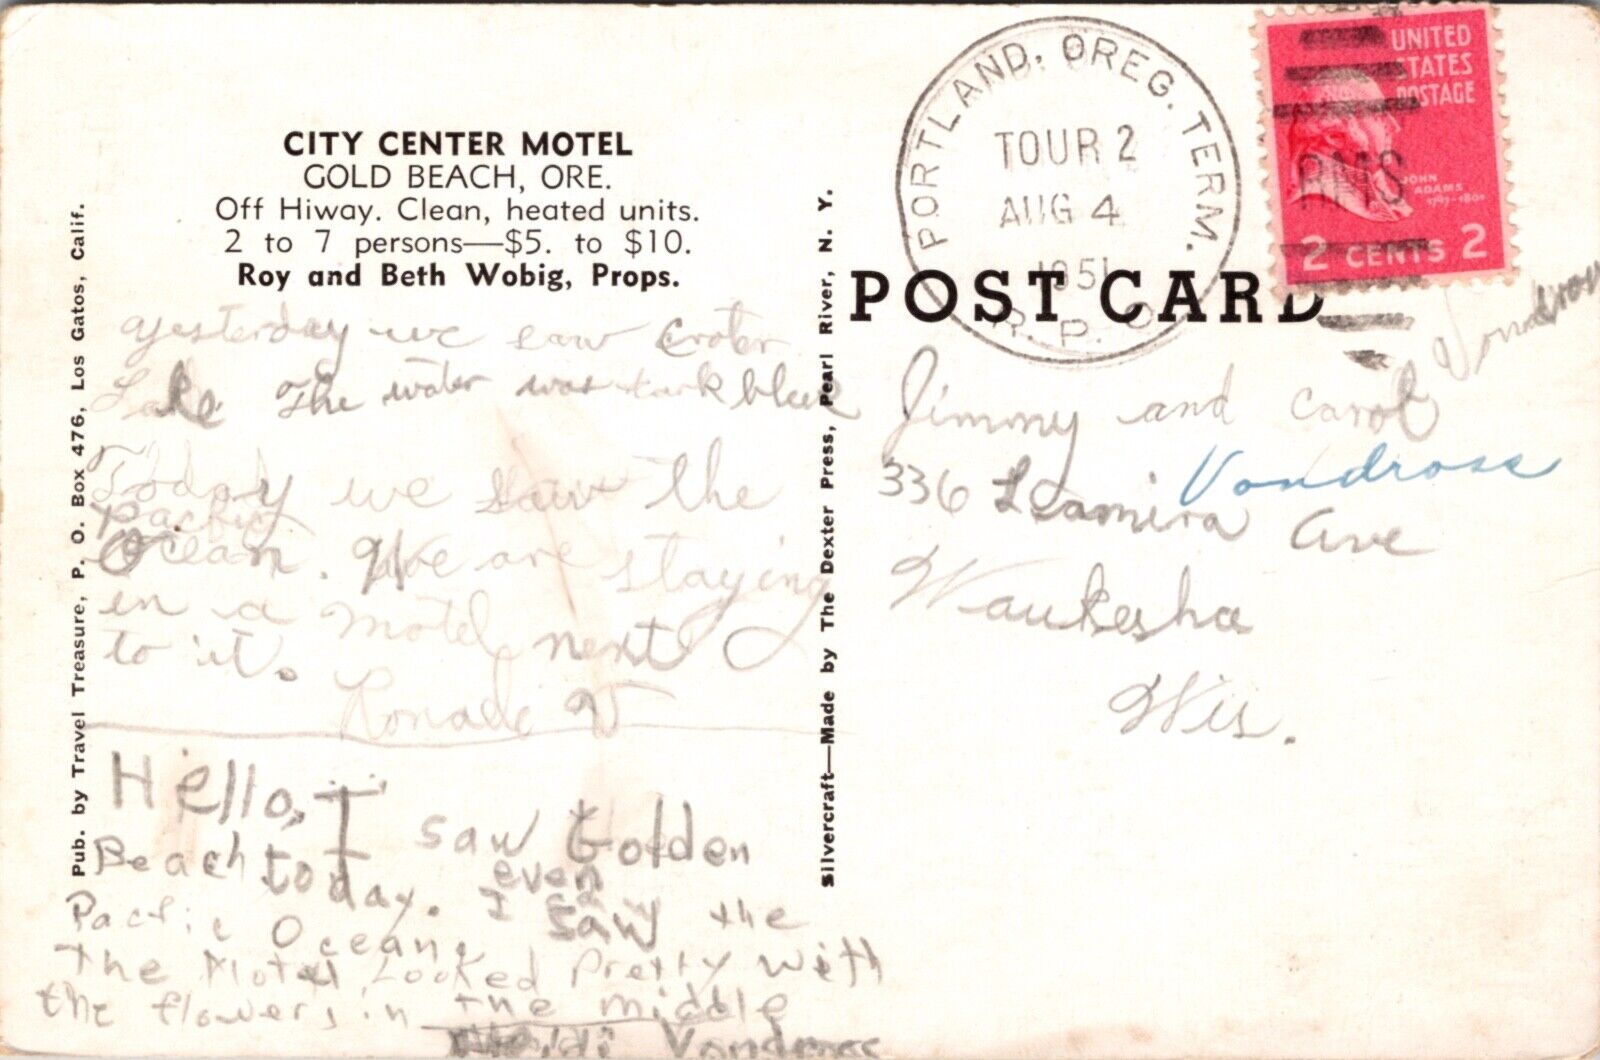 CITY CENTER MOTEL
GOLD BEACH, ORE.
Off Hiway. Clean, heated units.
2 to 7 persons—$5. to $10.
Roy and Beth Wobig, Props.
yesterday we saw Crater
Lake. The water was dark blue
Today we saw the
Pacific
Ocean. We are staying
in a motel next
to it.
Ronald V
Hello, I saw Golden
Beach today. I even
saw the
Pacific Ocean.
The Motel Looked Pretty with
the flowers in the middle
Heidi Vondrose
Pub. by Travel Treasure, P. O. Box 476, Los Gatos, Calif.
Silvercraft—Made by The Dexter Press, Pearl River, N. Y.
PORTLAND, OREG. TERM.
TOUR 2
AUG 4
1951
R. P. O.
UNITED
STATES
POSTAGE
RMS
JOHN
ADAMS
1797-1801
2 CENTS 2
POST CARD
Jimmy and Carol
Vondrose
336 Lamira Ave
Waukesha
Wis.